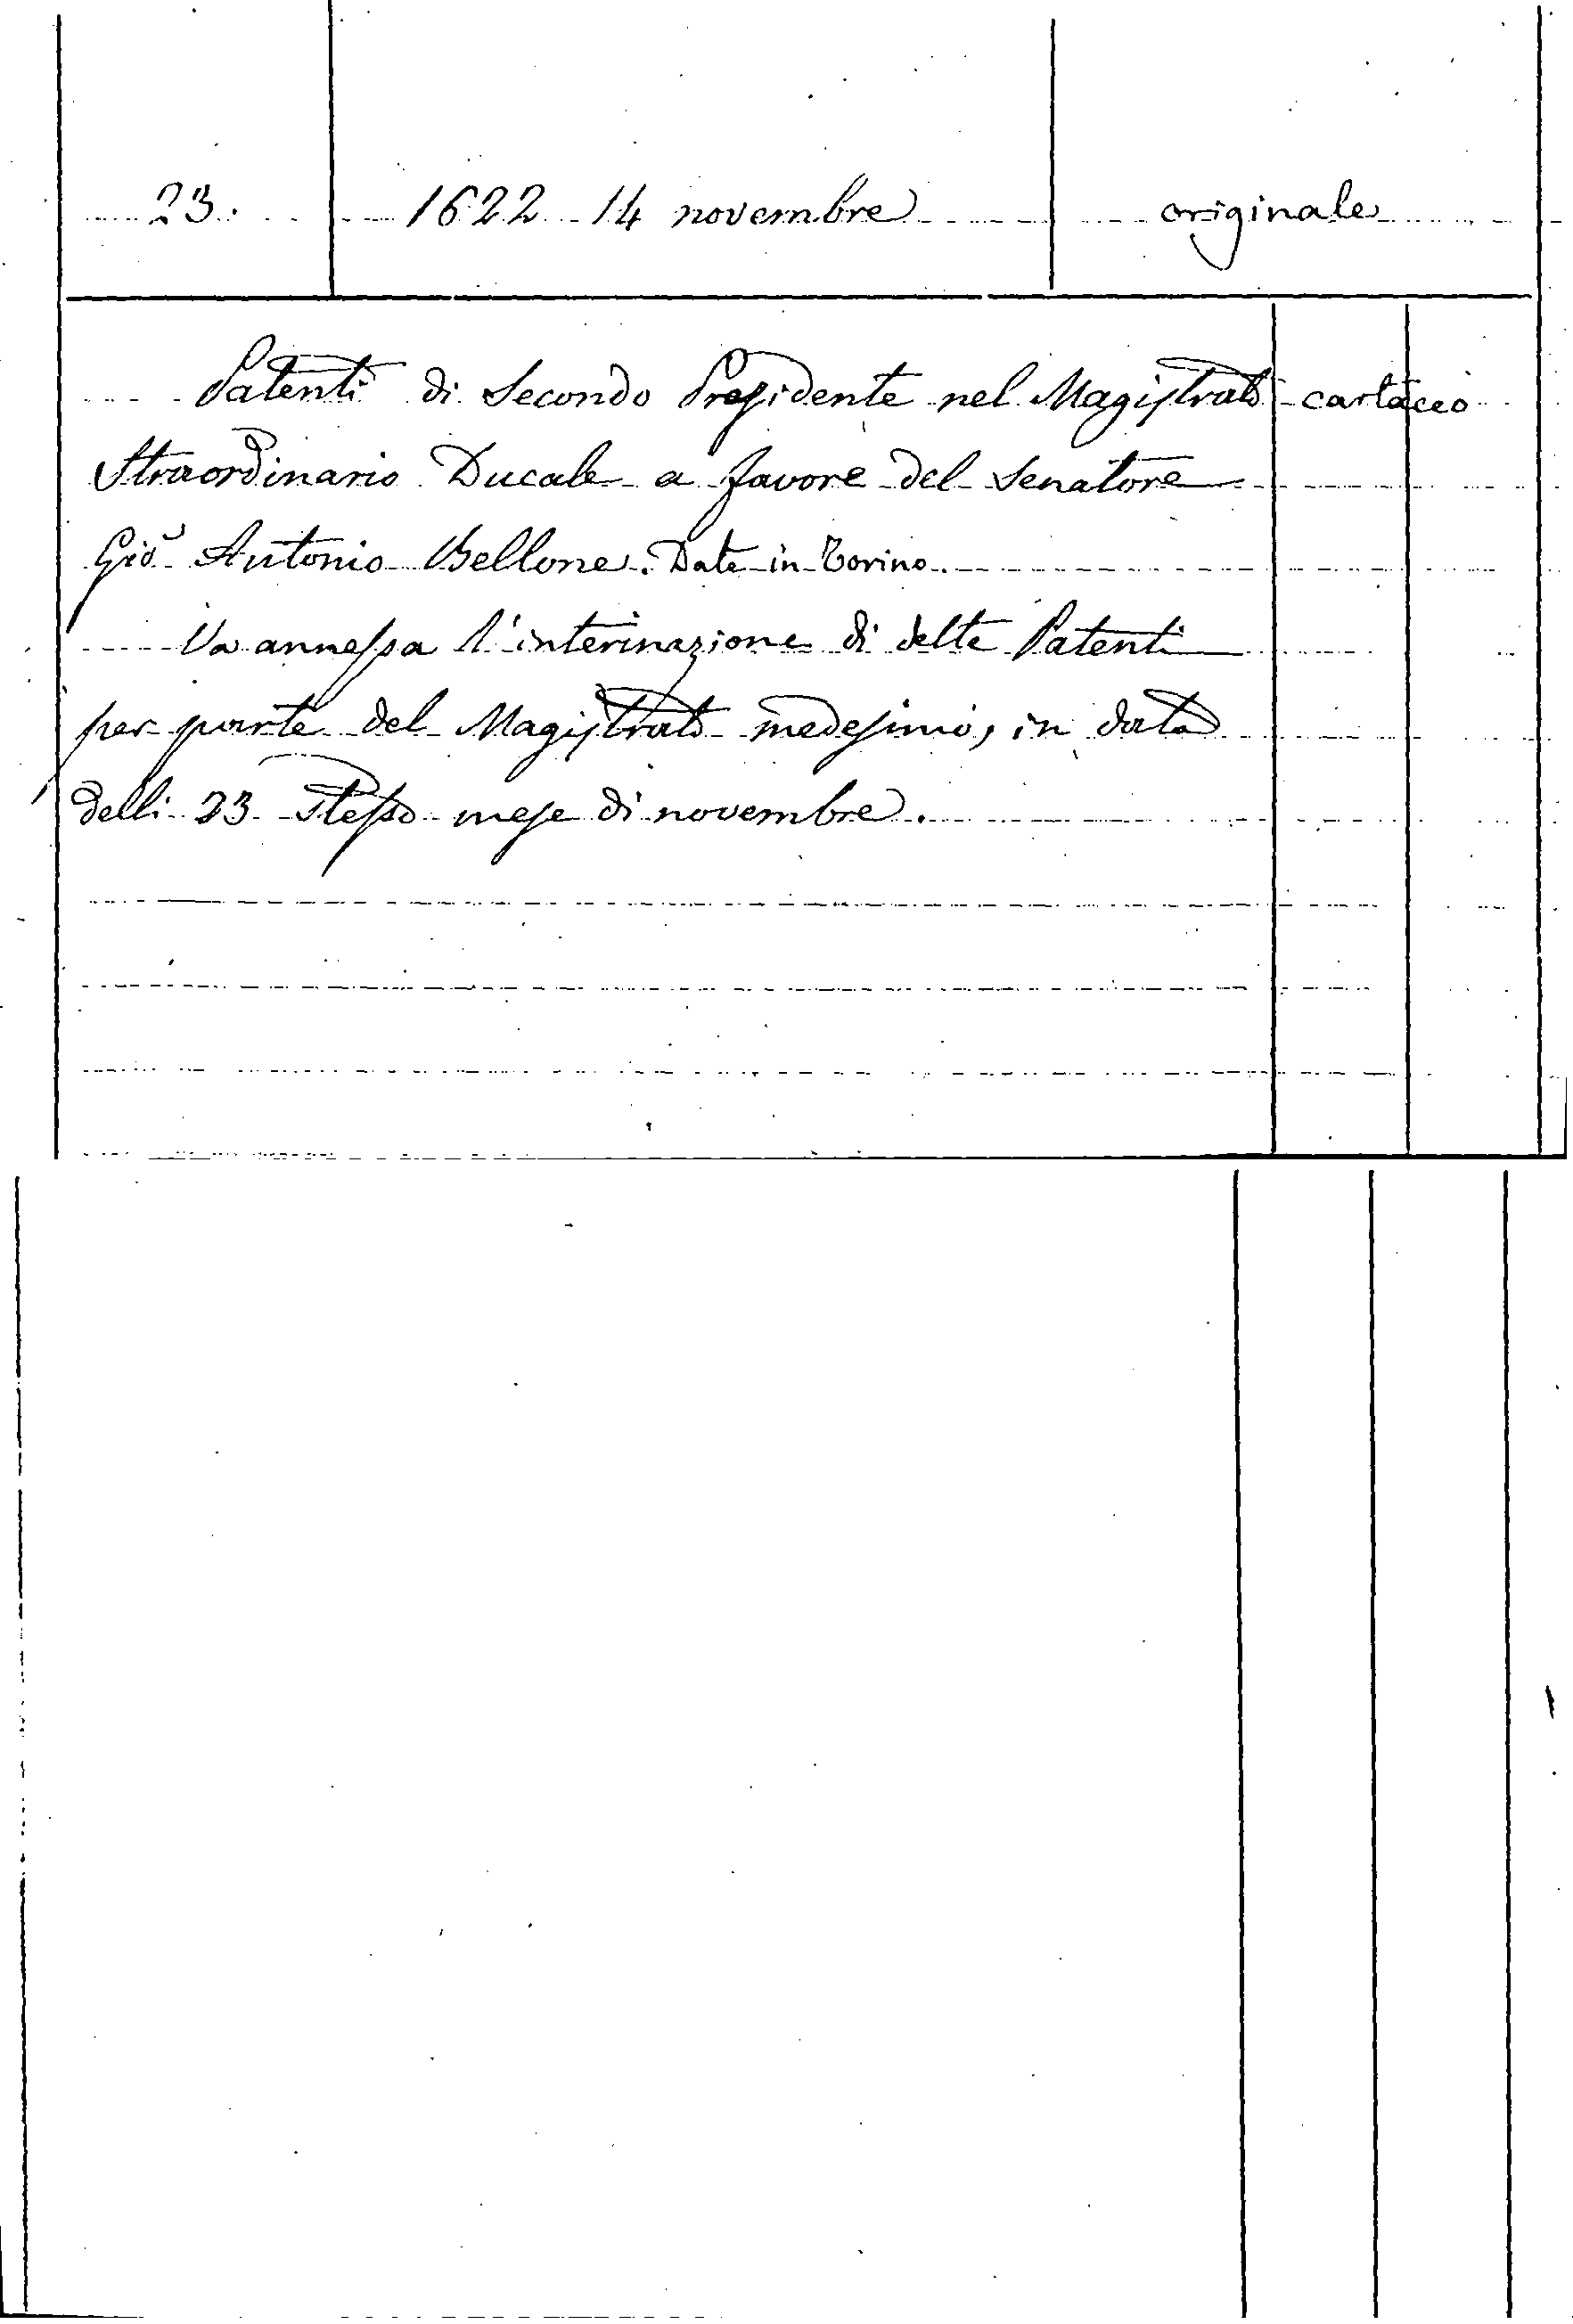 23. 1622 14 novembre originale
Patenti di Secondo Presidente nel Magistrato cartaceo
Straordinario Ducale a favore del Senatore
Gio Antonio Bellone. Date in Torino.
Va annessa l'interinazione di dette Patenti
per parte del Magistrato medesimo, in data
delli 23 stesso mese di novembre.